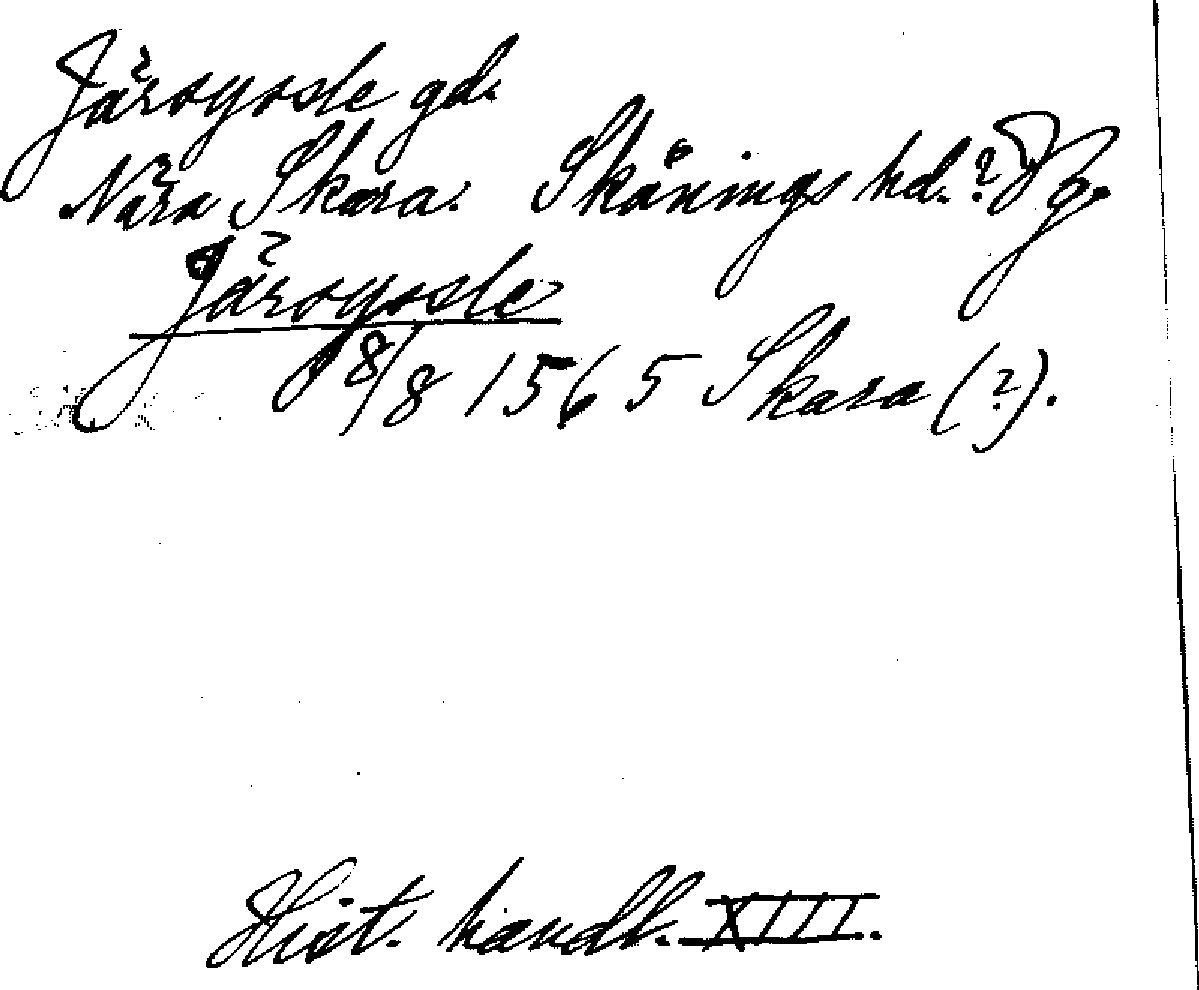 Järoyosle gd.
Nära Skara. Skånings hd.? Vg.
Järoyosle
18/8 1565 Skara (?).
Hist. handl. XIII.